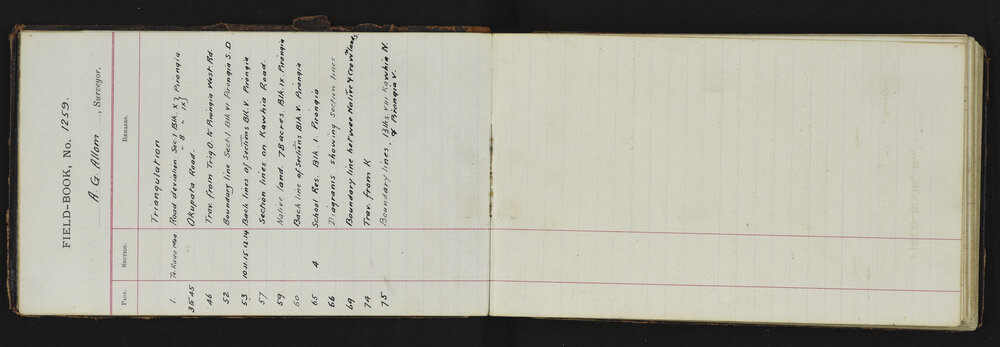 FIELD-BOOK, No. 1259.
A. G. Allom, Surveyor.
PAGE. SECTION. REMARKS.
Triangulation
1. Road deviation Sec. 1 Blk X } Pirongia
" 8 " IX }
35 45 Okupata Road.
46 Trav. from Trig O. to Pirongia West Rd
52 Boundary line Sect. 1. Blk VI Pirongia S. D
53 10.11.15.12.14 Back lines of Sections Blk. V. Pirongia
57 Section lines on Kawhia Road.
59 Native land. 78 acres. Blk. IX. Pirongia
60 Back line of Sections Blk. V. Pirongia
65 4 School Res. Blk 1. Pirongia
66 Diagrams showing Section lines
69 Boundary line betwee Native & Crown lands
74 Trav. from K
75 Boundary lines, Blks. VIII Kawhia N.
& Pirongia V.